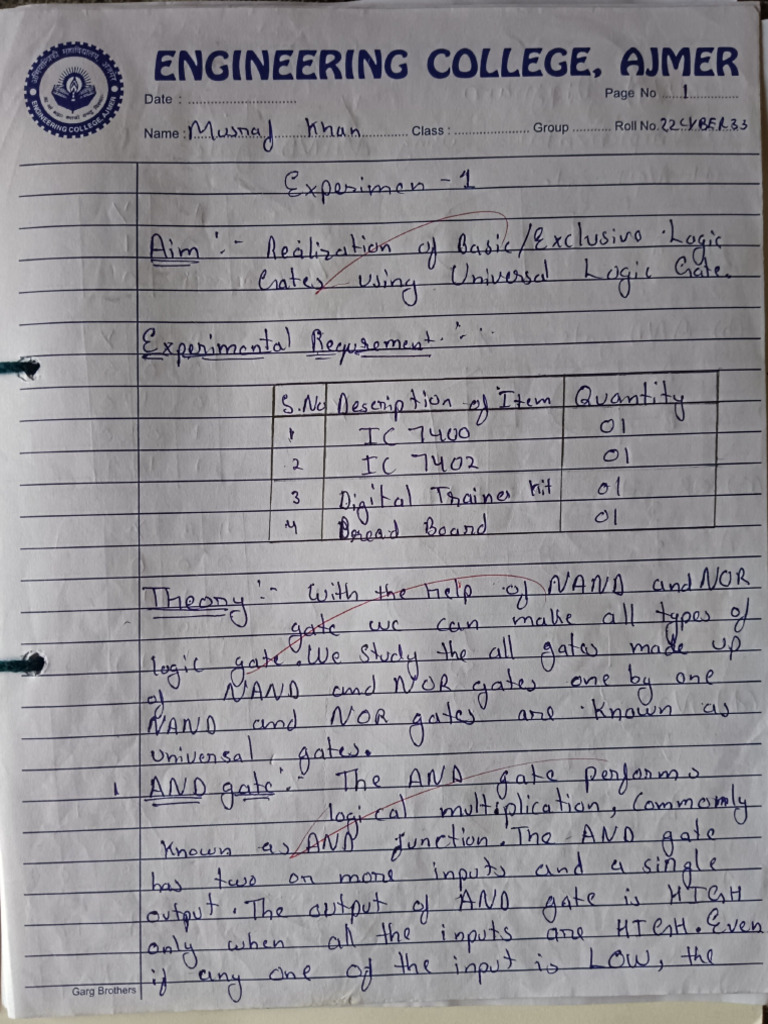 ENGINEERING COLLEGE, AJMER
Date : ................................
Page No ..... 1 ..............
Name : Musraf Khan ............ Class : ...................... Group ........... Roll No. 22CYBER33
Experimen - 1
Aim :- Realization of Basic/Exclusivo Logic
Gates using Universal Logic Gate.
Experimental Requrement :-
S.No Description of Item Quantity
1 IC 7400 01
2 IC 7402 01
3 Digital Trainer Kit 01
4 Bread Board 01
Theory :- With the help of NAND and NOR
gate we can make all types of
logic gate. We Study the all gates made up
of NAND and NOR gates one by one
NAND and NOR gates are Known as
universal gates.
1 AND gate :- The AND gate performs
logical multiplication, Commomly
Known as AND function. The AND gate
has two or more inputs and a single
output. The output of AND gate is HIGH
only when all the inputs are HIGH. Even
if any one of the input is LOW, the
Garg Brothers